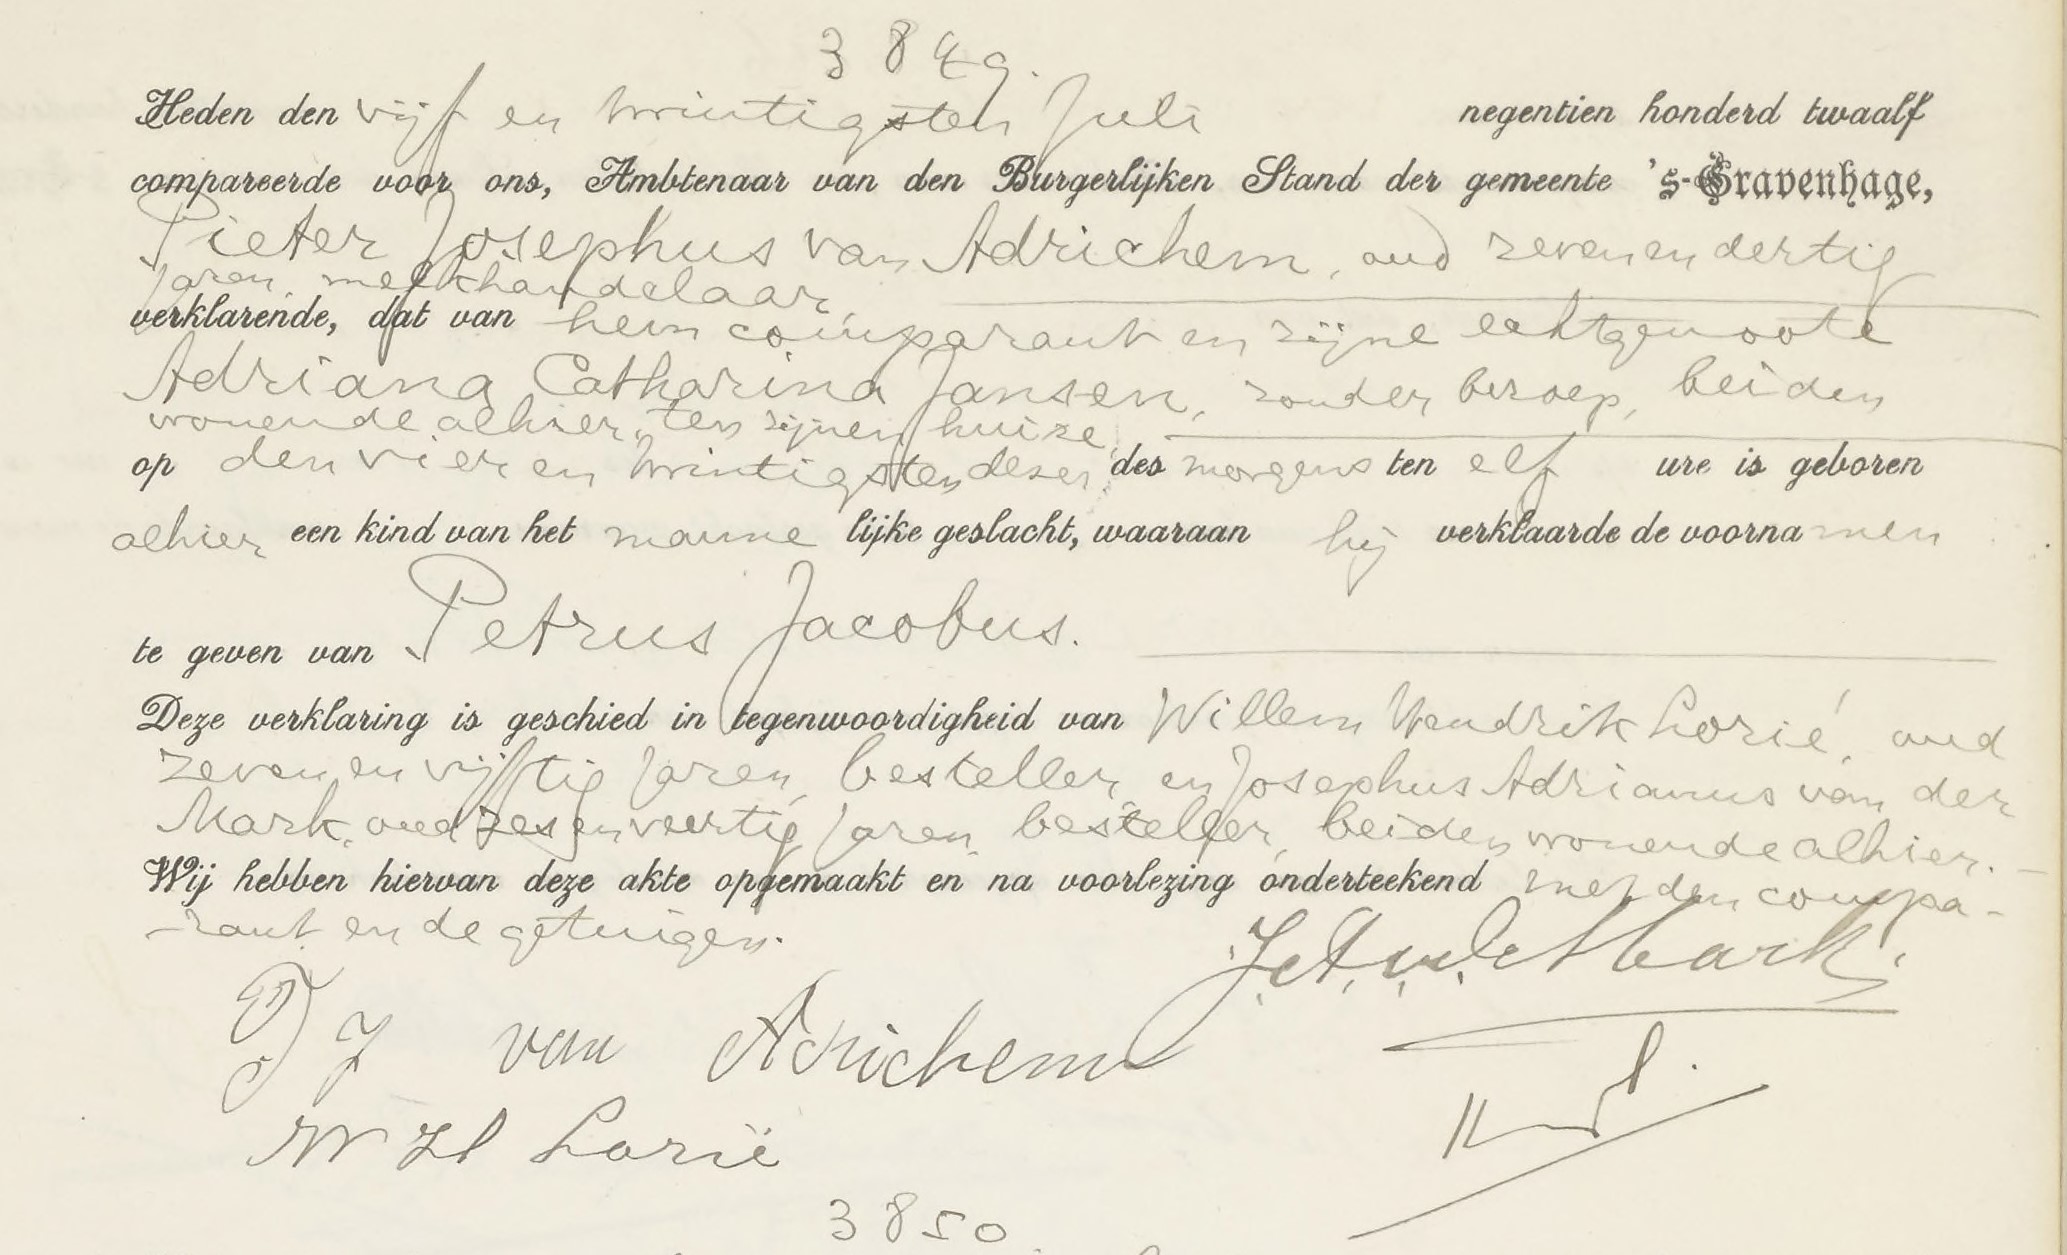 3849.
Heden den vijf en twintigsten Juli negentien honderd twaalf
compareerde voor ons, Ambtenaar van den Burgerlijken Stand der gemeente 's-Gravenhage,
Pieter Josephus van Adrichem, oud zevenendertig
jaren, melkhandelaar
verklarende, dat van hem comparant en zijne echtgenoote
Adriana Catharina Jansen, zonder beroep, beiden
wonende alhier, ten zijnen huize,
op den vier en twintigsten dezer, des morgens ten elf ure is geboren
alhier een kind van het manne lijke geslacht, waaraan hij verklaarde de voorna men
te geven van Petrus Jacobus.
Deze verklaring is geschied in tegenwoordigheid van Willem Hendrik Lorié, oud
zeven en vijftig jaren, besteller, en Josephus Adrianus van der
Mark, oud zes en veertig jaren, besteller, beiden wonende alhier.
Wij hebben hiervan deze akte opgemaakt en na voorlezing onderteekend met den compa-
-rant en de getuigen.
J. A. v. d. Mark.
P J van Adrichem
W H Lorië
3850.